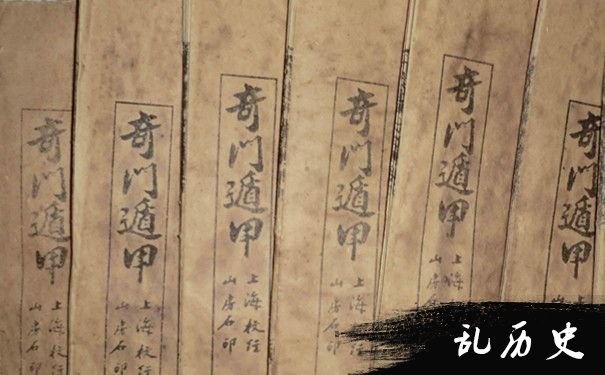 奇門遁甲
上海校經
山房石印
奇門遁甲
上海校經
山房石印
奇門遁甲
上海校經
山房石印
奇門遁甲
上海校經
山房石印
奇門遁甲
上海
山房
奇門遁甲
上
山
乱历史